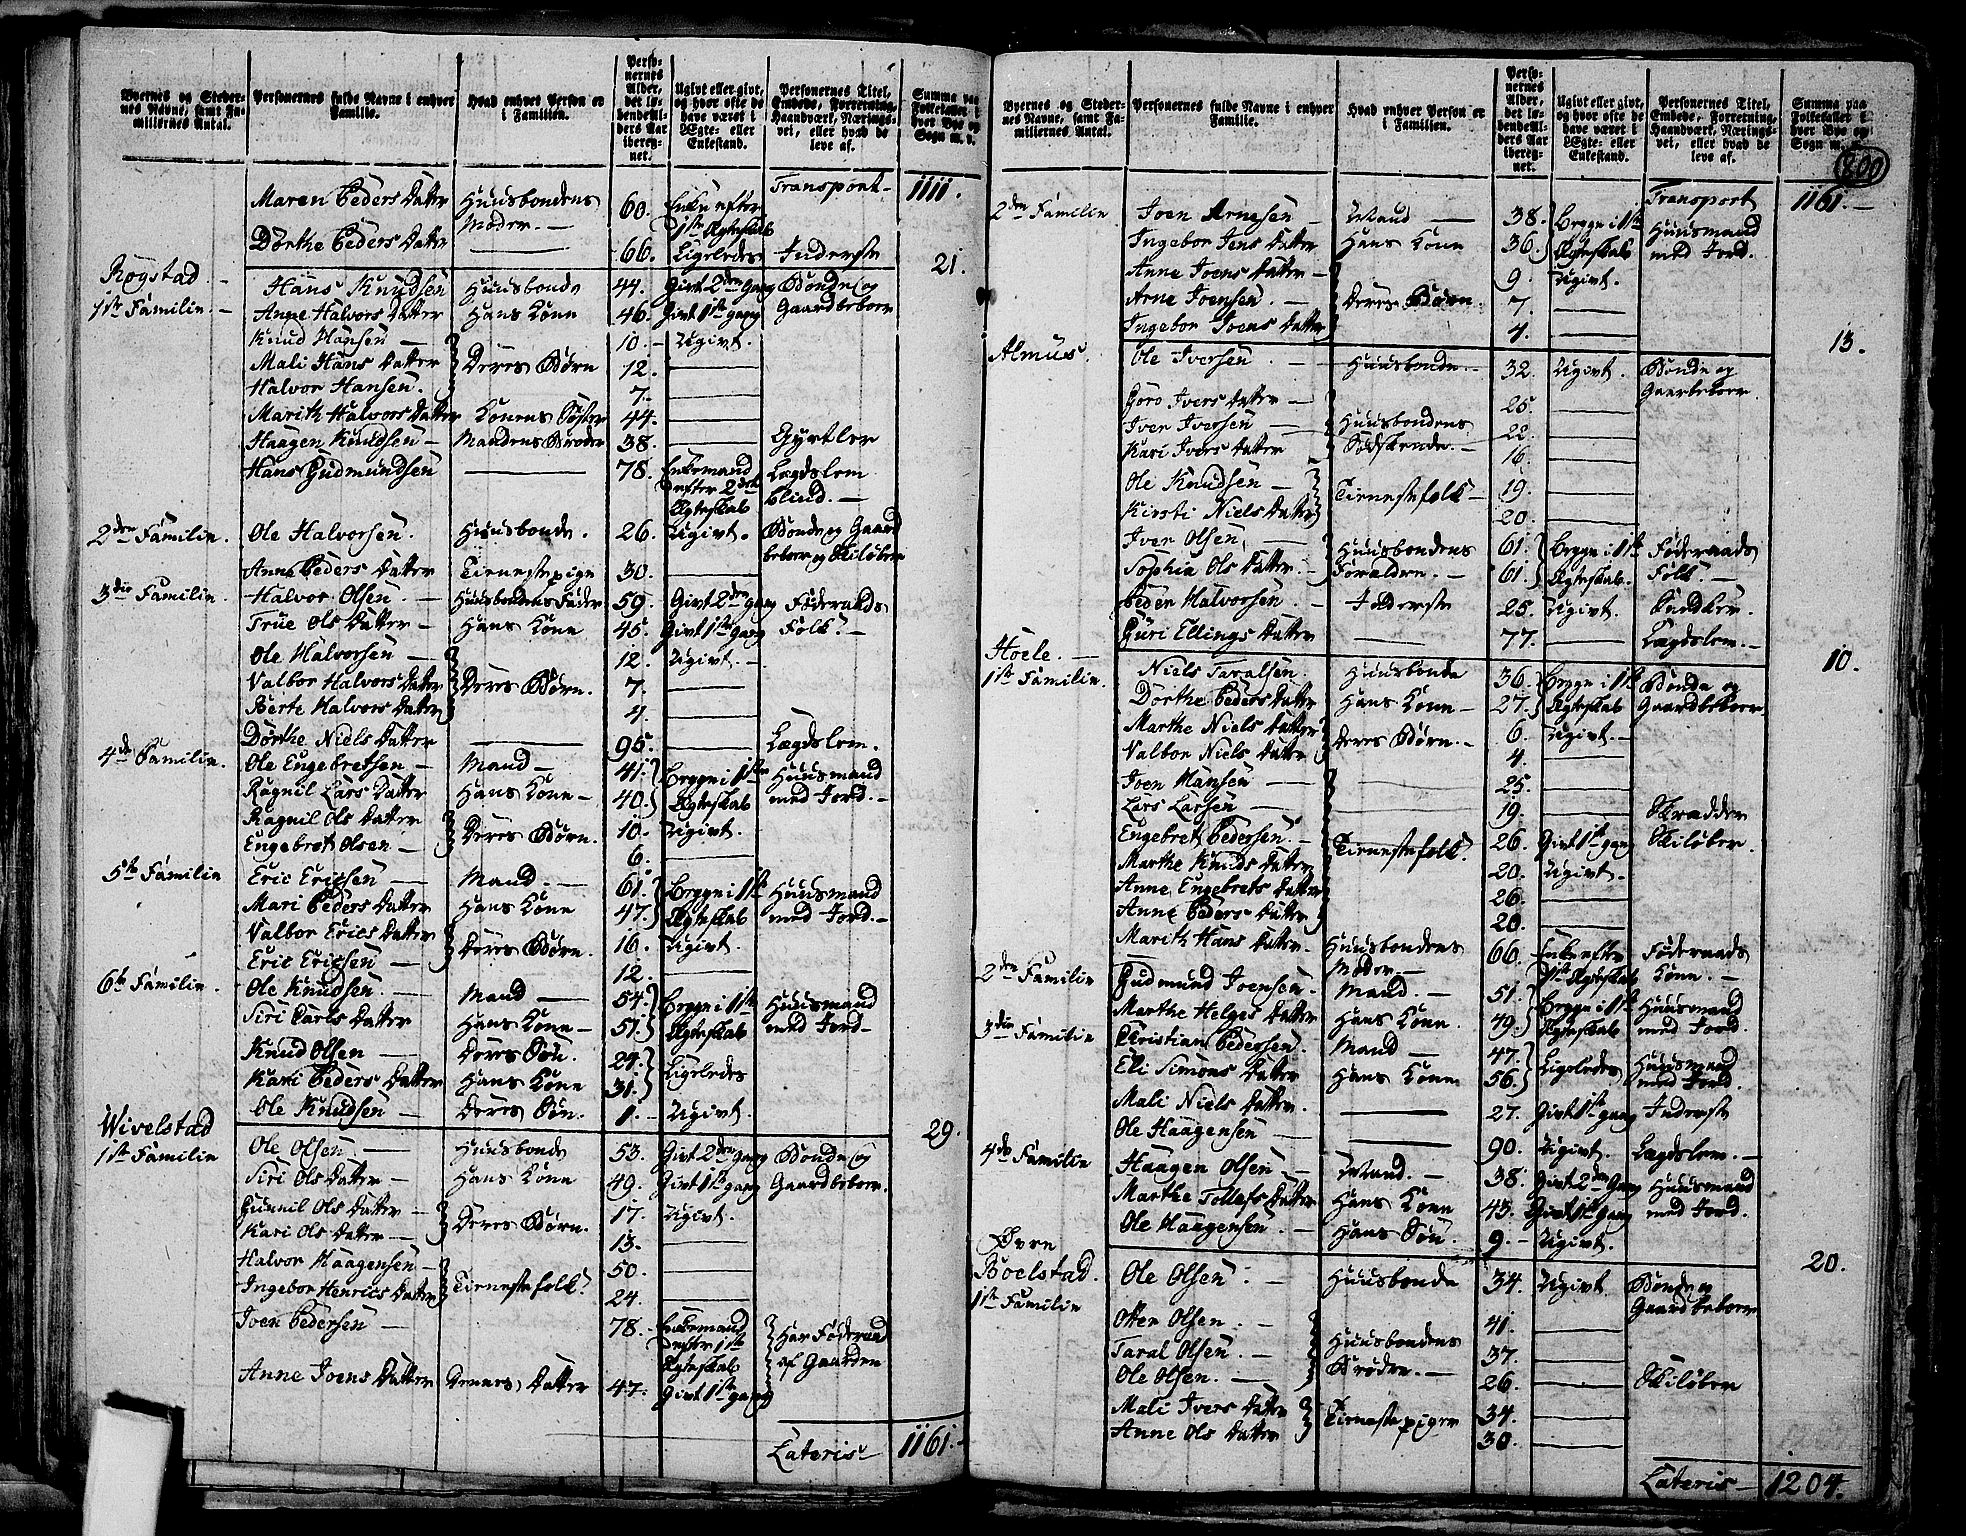 Byernes og Steder-
nes Navne, samt Fa-
miliernes Antal.
Personernes fulde Navne i enhver
Familie.
Hvad enhver Person er
i Familien.
Perso-
nernes
Alder,
det lø-
bende Al-
ders Aar
ibereg-
net.
Ugivt eller givt,
og hvor ofte de
have været i
Ægte- eller
Enkestand.
Personernes Titel,
Embede, Forretning,
Haandværk, Nærings-
vei, eller hvad de
leve af.
Summa paa
Folketallet i
hver Bye og
Sogn m. v.
Transport - 1111.
Maren Peders Datter Huusbondens Moder. - 60. Enke efter 1ste Ægteskab
Dorthe Peders Datter 66. Ligeledes Inderste 21.
Rogstad -
1ste Familie. - Hans Knudsen Huusbonde 44. Givt 2den Gang Bonde og Gaardbeboer
Anne Halvors Datter Hans Kone 46. Givt 1ste gang
Knud Hansen - 10. - Ugivt.
Mali Hans Datter Deres Børn 12.
Halvor Hansen. 7.
Marith Halvors Datter Konens Søster 44.
Haagen Knudsen - Mandens Broder 38. Gyrtler
Hans Gudmundsen 78. Enkemand efter 2det Ægteskab Lægdslem blind. -
2den Familie. Ole Halvorsen. Huusbonde. 26. Ugivt. Bonde og Gaardbeboer og Skiløber
Anne Peders Datter Tieneste pige 30.
3die Familie. Halvor Olsen. - Huusbondens Fader 59. Givt 2den gang Føderaads Folk. -
True Ols Datter - Hans Kone 45. Givt 1ste Gang
Ole Halvorsen - 12. Ugivt. -
Valbor Halvors Datter Deres Børn. 7.
Berte Halvors Datter 4.
Dorthe Niels Datter 95. Lægdslem.
4de Familie. Ole Engebretsen - Mand - 41. Begge i 1ste Ægteskab Huusmand med Jord. -
Ragnil Lars Datter Hans Kone - 40.
Ragnil Ols Datter Deres Børn. 10. Ugivt.
Engebret Olsen - 6.
5te Familie Eric Ericsen - Mand. - 61. Begge i 1ste Ægteskab Huusmand med Jord. -
Mari Peders Datter Hans Kone 47.
Valbor Erics Datter Deres Børn. 16. Ugivt.
Eric Ericsen - 12.
6te Familie. Ole Knudsen - Mand - 54. Begge i 1ste Ægteskab Huusmand med Jord -
Siri Carls Datter Hans Kone - 51.
Knud Olsen - Deres Søn. 24. Ligeledes
Kari Peders Datter Hans Kone 31.
Ole Knudsen - Deres Søn. 1. - Ugivt.
Wivelstad 29.
1ste Familie Ole Olsen. - Huusbonde 53. Givt 2den gang Bonde og Gaardbeboer.
Siri Ols Datter - Hans Kone 49. Givt 1ste gang
Gunnil Ols Datter - Deres Børn. 17. Ugivt.
Kari Ols Datter - 13.
Halvor Haagensen - Tienestefolk 50.
Ingebor Henrics Datter 24.
Joen Pedersen - 78. - Enkemand efter 1ste Ægteskab Har Føderaad af Gaarden
Anne Joens Datter Dennes Datter 47. Givt 1ste gang
Lateris 1161. -
Byernes og Steder-
nes Navne, samt Fa-
miliernes Antal.
Personernes fulde Navne i enhver
Familie.
Hvad enhver Person er
i Familien.
Perso-
nernes
Alder,
det lø-
bende Al-
ders Aar
ibereg-
net.
Ugivt eller givt,
og hvor ofte de
have været i
Ægte- eller
Enkestand.
Personernes Titel,
Embede, Forretning,
Haandværk, Nærings-
vei, eller hvad de
leve af.
Summa paa
Folketallet i
hver Bye og
Sogn m. v.
800
Transport 1161. -
2den Familie Joen Arnesen - Mand - 38. Begge i 1ste Ægteskab Huusmand med Jord.
Ingebor Jens Datter Hans Kone 36.
Anne Joens Datter - 9. Ugivt.
Arne Joensen. - Deres Børn. 7.
Ingebor Joens Datter 4.
Almus. 13.
Ole Iversen - Huusbonde. - 32. Ugivt. Bonde og Gaardbeboer
Goro Ivers Datter - 25.
Iver Iversen - Huusbondens Sødskende. - 22.
Kari Ivers Datter 16.
Ole Knudsen - Tienestefolk - 19.
Kirsti Niels Datter 20.
Iver Olsen. - Huusbondens Forældre. - 61. Begge i 1ste Ægteskab. Føderaads Folk. -
Sophia Ols Datter. - 61.
Peder Halvorsen - Inderste 25. Ugivt.
Guri Ellings Datter 77. Lægdslem. -
Hoele. - 10.
1ste Familie. Niels Taralsen. Huusbonde 36. Begge i 1ste Ægteskab Bonde og Gaardbeboer
Dorthe Peders Datter Hans Kone - 27.
Marthe Niels Datter Deres Børn. - 6. Ugivt. -
Valbor Niels Datter 4.
Joen Hansen - 25.
Lars Larsen - 19. Skrædder
Engebret Pedersen. - Tienestefolk. 26. Givt 1ste gang Skiløber.
Marthe Knuds Datter 20. Ugivt.
Anne Engebrets Datter 26.
Anne Peders Datter 20.
Marith Hans Datter. - Huusbondens Moder - 66. Enke efter 1ste Ægteskab Føderaads Kone. -
2den Familie Gudmund Joensen. Mand. - 51. Begge i 1ste Ægteskab Huusmand med Jord.
Marthe Helges Datter Hans Kone. 49.
3die Familie Christian Pedersen. Mand - 47. Ligeledes Huusmand med Jord.
Eli Simons Datter Hans Kone 56.
Mali Niels Datter. 27. Givt 1ste gang Inderste
Ole Haagensen - 90. Ugivt. Lægdslem. -
4de Familie Haagen Olsen. - Mand. - 38. Givt 2den Gang Huusmand med Jord.
Marthe Tollefs Datter Hans Kone 43. Givt 1ste Gang
Ole Haagensen. - Hans Søn 9. - Ugivt.
Øvre
Boelstad. 20.
1ste Familie Ole Olsen. - Huusbonde 34. Ugivt Bonde og Gaardbeboer
Otter Olsen. 41.
Taral Olsen. - Huusbondens Brødre. 37.
Ole Olsen. - 26. Skiløber
Mali Ivers Datter Tieneste piger 34.
Anne Ols Datter 30.
Lateris - 1204.